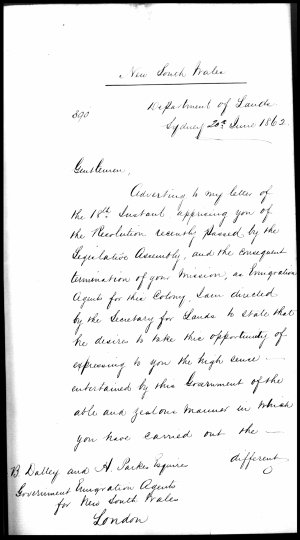 New South Wales
390
Department of Lands
Sydney 20th June 1862
Gentlemen,
Adverting to my letter of
the 18th Instant apprising you of
the Resolution recently passed by the
Legislative Assembly, and the consequent
termination of your Mission, as Emigration
Agents for this Colony, I am directed
by the Secretary for Lands to state that
he desires to take this opportunity of
expressing to you the high sense
entertained by this Government of the
able and zealous manner in which
you have carried out the
different
B Dalley and H Parkes Esquires
Government Emigration Agents
for New South Wales
London